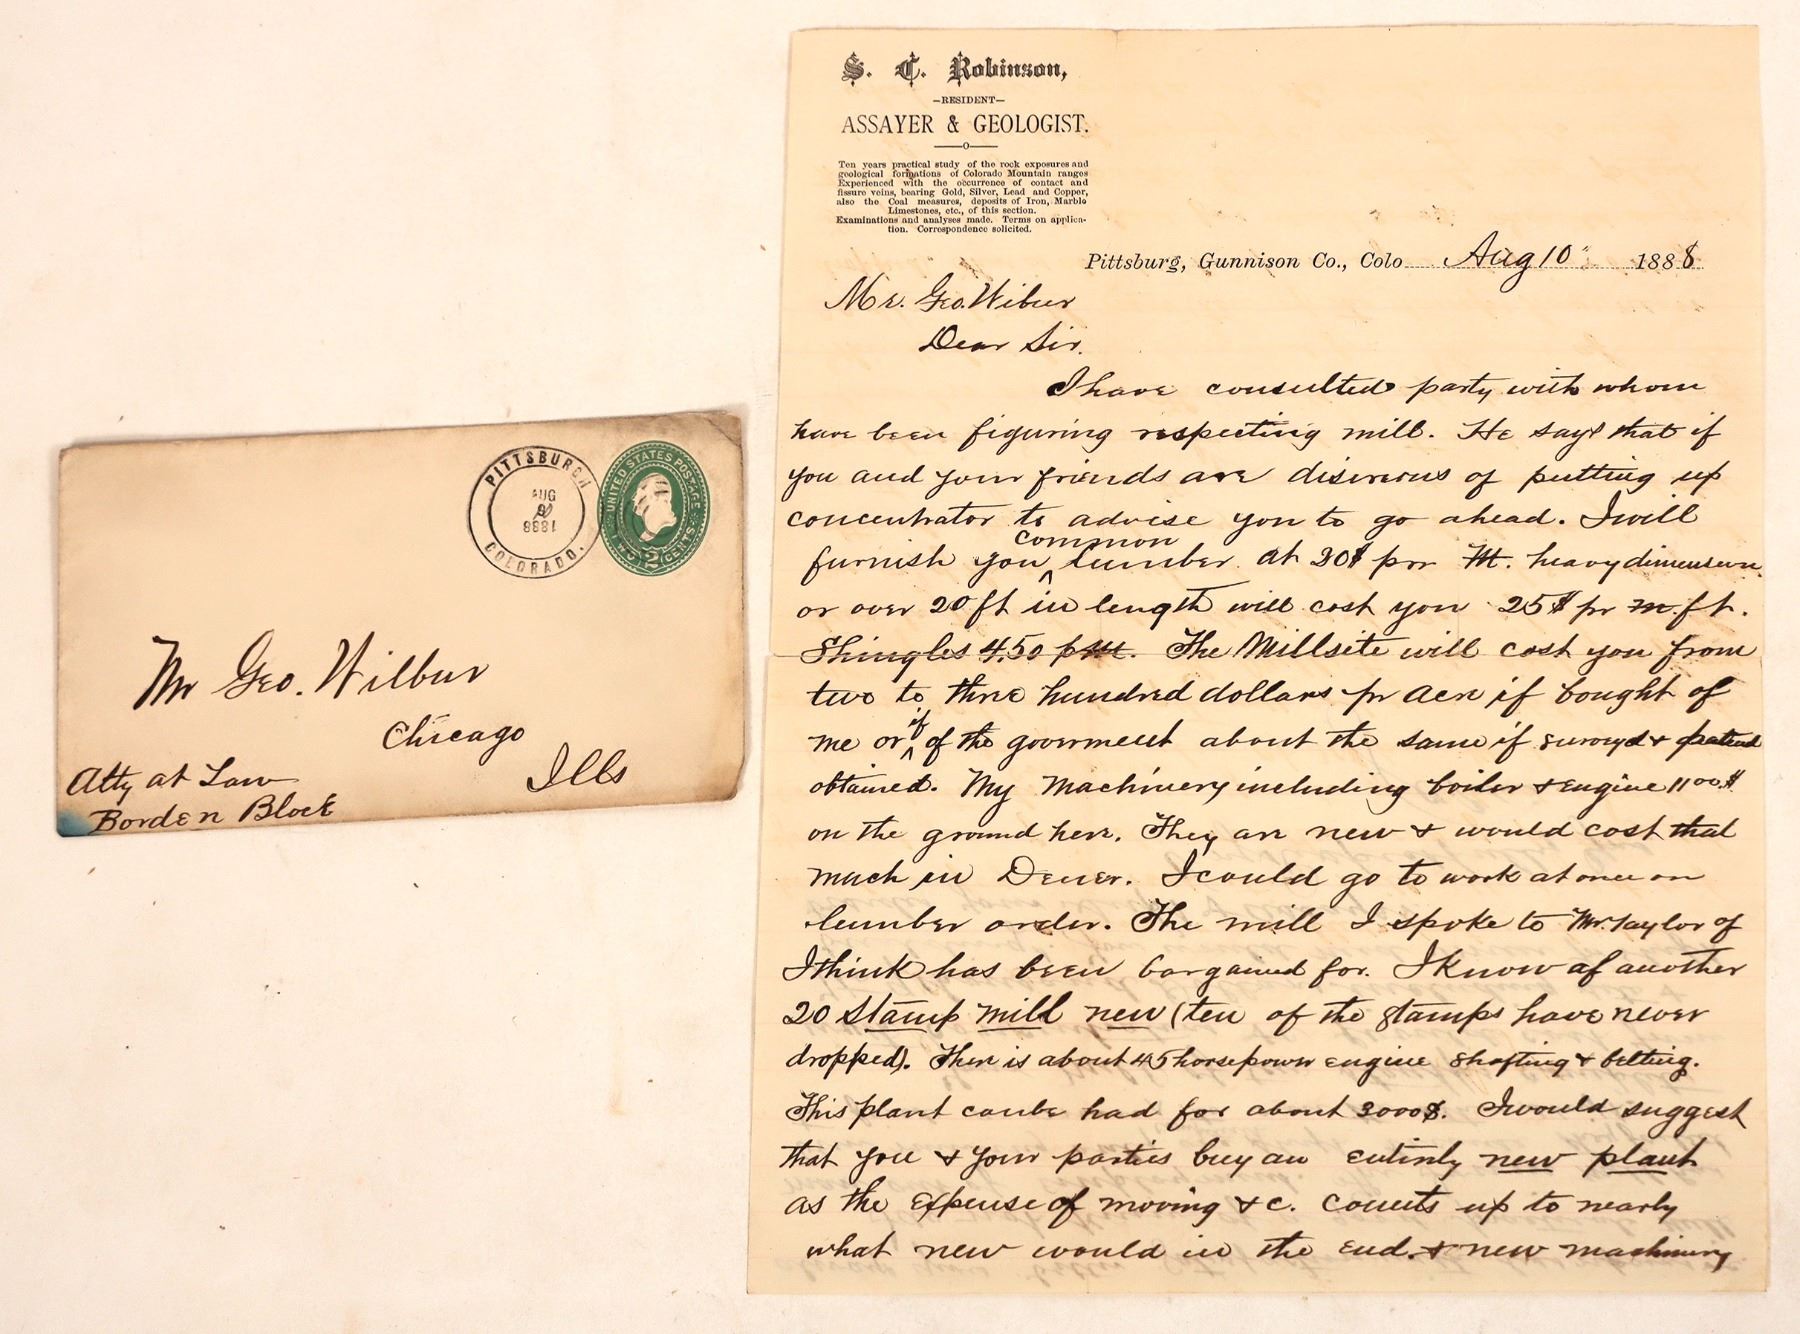 PITTSBURGH
AUG
1888
COLORADO.
UNITED STATES POSTAGE
TWO 2 CENTS
Mr Geo. Wilbur
Chicago
Ills
Atty at Law
Borden Block
S. C. Robinson,
—RESIDENT—
ASSAYER & GEOLOGIST.
Ten years practical study of the rock exposures and
geological formations of Colorado Mountain ranges
Experienced with the occurrence of contact and
fissure veins, bearing Gold, Silver, Lead and Copper,
also the Coal measures, deposits of Iron, Marble
Limestones, etc., of this section.
Examinations and analyses made. Terms on applica-
tion. Correspondence solicited.
Pittsburg, Gunnison Co., Colo Aug 10" 1888
Mr. Geo. Wilbur
Dear Sir.
I have consulted party with whom
have been figuring respecting mill. He says that if
you and your friends are disireous of putting up
concentrator to advise you to go ahead. I will
common
furnish you ^ lumber at 20$ per M. heavy dimension
or over 20 ft in length will cost you 25$ pr m. ft.
Shingles 4.50 p M. The Millsite will cost you from
two to three hundred dollars pr acre if bought of
if
me or ^ of the goverment about the same if surveyed + patent
obtained. My Machinery including boiler + engine 1100$
on the ground here. They are new + would cost that
much in Dever. I could go to work at once on
lumber order. The mill I spoke to Mr. Taylor of
I think has been bargained for. I know of another
20 stamp mill new (ten of the stamps have never
dropped). There is about 45 horsepower engine shafting + belting.
This plant can be had for about 3000$. I would suggest
that you + your parties buy an entirely new plant
as the expense of moving + c. counts up to nearly
what new would in the end. + new machinery